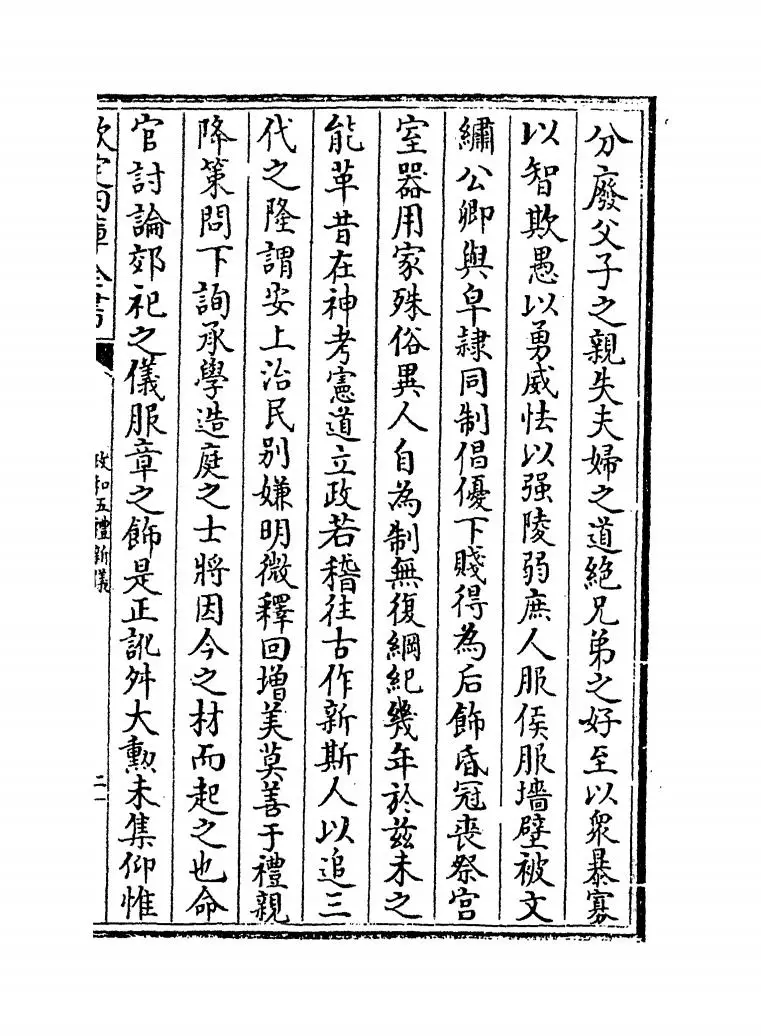 分廢父子之親失夫婦之道絶兄弟之好至以衆暴寡
以智欺愚以勇威怯以强陵弱庶人服侯服墻壁被文
繡公卿與皁隷同制倡優下賤得為后飾昏冠喪祭宫
室器用家殊俗異人自為制無復綱紀幾年於兹未之
能革昔在神考憲道立政若稽往古作新斯人以追三
代之隆謂安上治民别嫌明微釋回增美莫善于禮親
降策問下詢承學造庭之士將因今之材而起之也命
官討論郊祀之儀服章之飾是正訛舛大勲未集仰惟
欽定四庫全書
政和五禮新儀
二